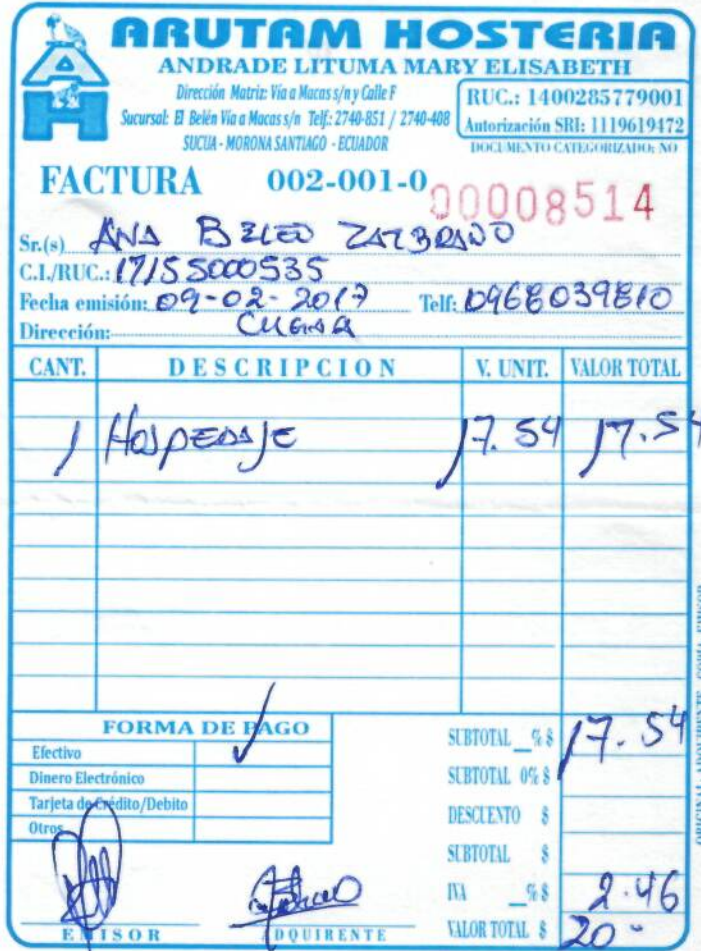 ARUTAM HOSTERIA
ANDRADE LITUMA MARY ELISABETH
Dirección Matriz: Vía a Macas s/n y Calle F
Sucursal: El Belén Vía a Macas s/n Telf.: 2740-851 / 2740-408
SUCUA - MORONA SANTIAGO - ECUADOR
RUC.: 1400285779001
Autorización SRI: 1119619472
DOCUMENTO CATEGORIZADO: NO
FACTURA 002-001-0 00008514
Sr.(s) ANA BELEO ZAMBRANO
C.I./RUC.: 17155000535
Fecha emisión: 09-02-2017 Telf: 0968039810
Dirección:
CANT. DESCRIPCION V. UNIT. VALOR TOTAL
1 HOSPEDAJE 17.54 17.54
FORMA DE PAGO
Efectivo ✓
Dinero Electrónico
Tarjeta de Crédito/Debito
Otros
SUBTOTAL __% $ 17.54
SUBTOTAL 0% $
DESCUENTO $
SUBTOTAL $
IVA __% $ 2.46
VALOR TOTAL $ 20-
EMISOR ADQUIRENTE
ORIGINAL: ADQUIRENTE - COPIA: EMISOR